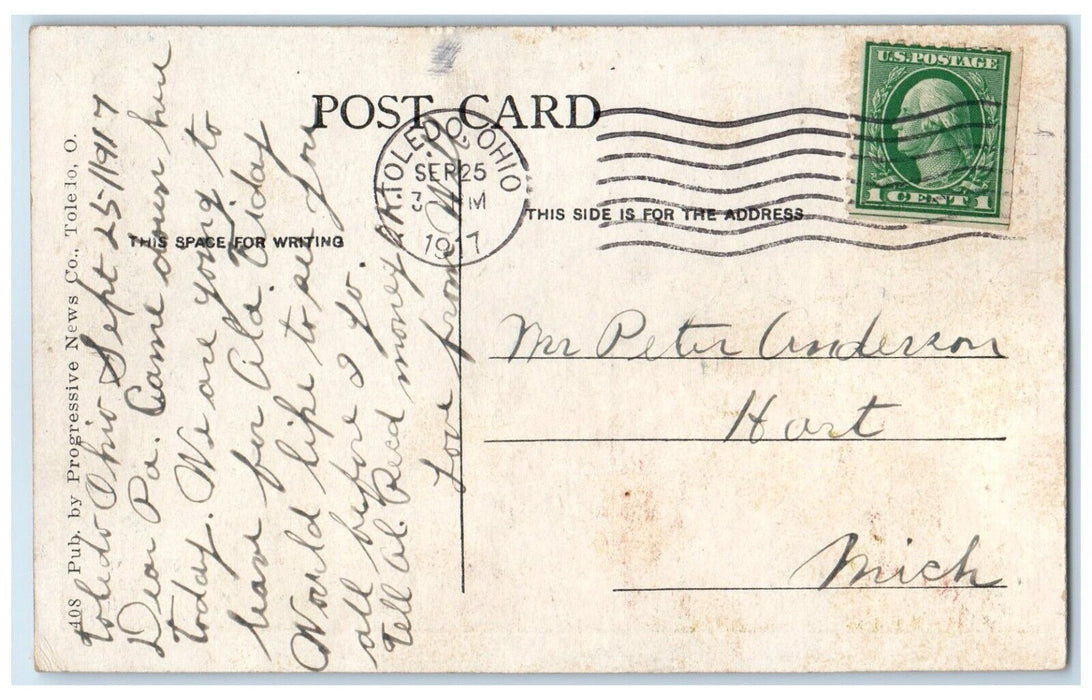 POST CARD
U.S. POSTAGE
1 CENT 1
TOLEDO, OHIO
SEP 25
3 PM
1917
THIS SPACE FOR WRITING
THIS SIDE IS FOR THE ADDRESS
408 Pub. by Progressive News Co., Toledo, O.
Toledo Ohio Sept 25-1917
Dear Pa. Came down here
today. We are going to
leave for Ala. Friday
Would like to see you
all before I go.
Tell al. Recd money
Love from
Mr Peter Anderson
Hart
Mich